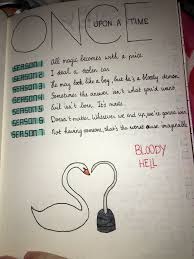 ONCE
UPON A TIME
SEASON 1 All magic becomes with a price
SEASON 2 I steal a stolen car.
SEASON 3 He may look like a boy, but he's a bloody demon
SEASON 4 Sometimes the answer isn't what you'd want
SEASON 5 Evil isn't born, It's made.
SEASON 6 Doesn't matter. Wherever we end up, we're gonna win
SEASON 7 Not having someone, that's the worst curse imaginable
BLOODY
HELL